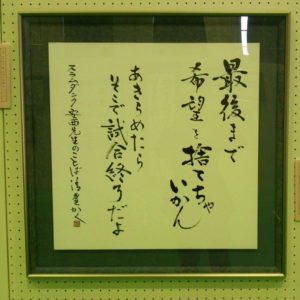 最後まで
希望を捨てちゃ
いかん
あきらめたら
そこで試合終了だよ
スラムダンク安西先生のことば